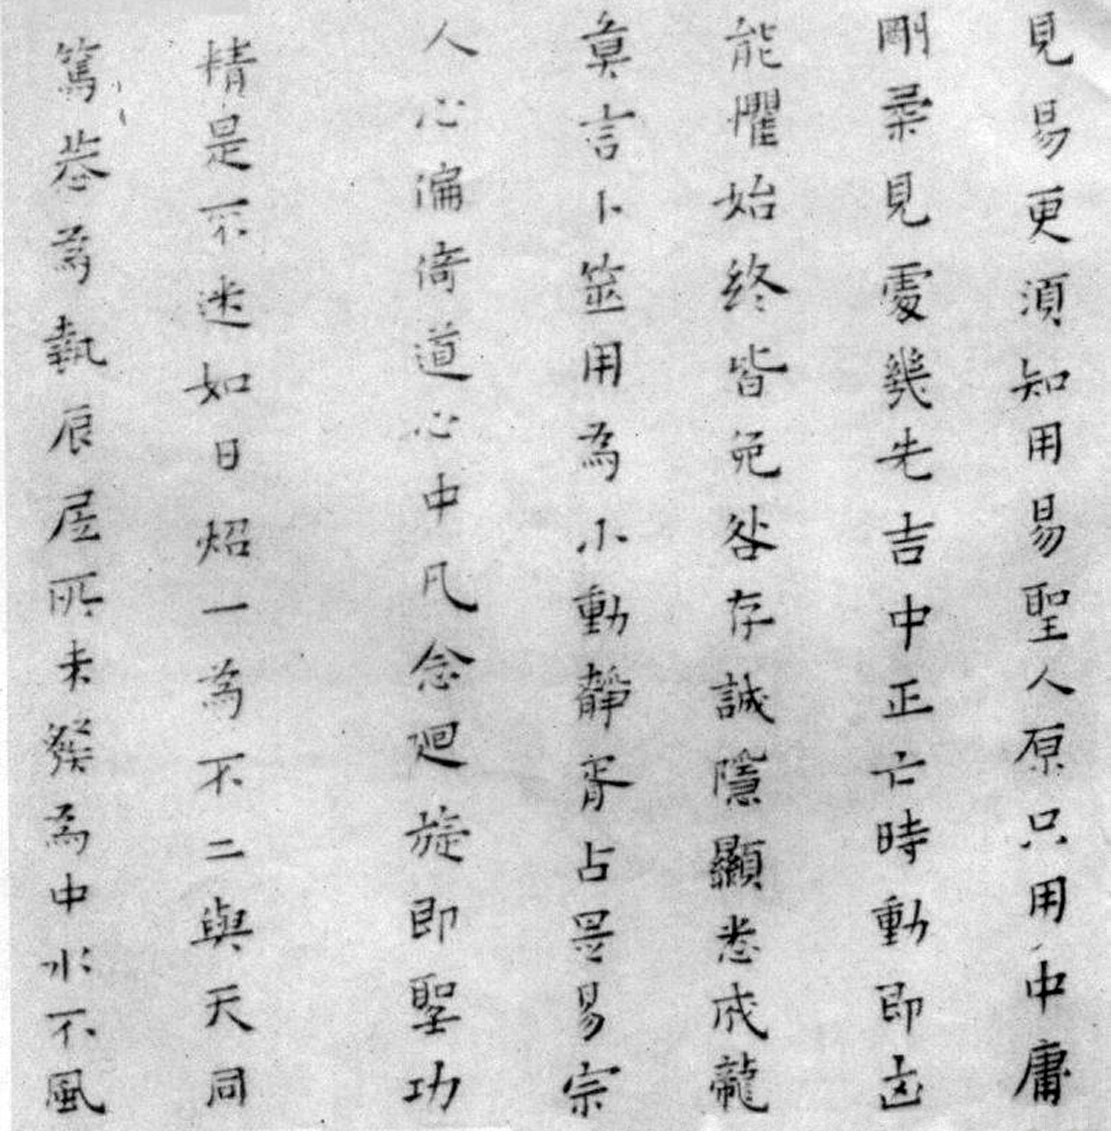 見易更須知用易聖人原只用中庸
剛柔見處幾先吉中正亡時動即凶
能懼始終皆免咎存誠隱顯悉成龍
莫言卜筮用為小動靜胥占是易宗
人心偏倚道心中凡念迴旋即聖功
精是不迷如日炤一為不二與天同
篤恭為執辰居所未發為中水不風